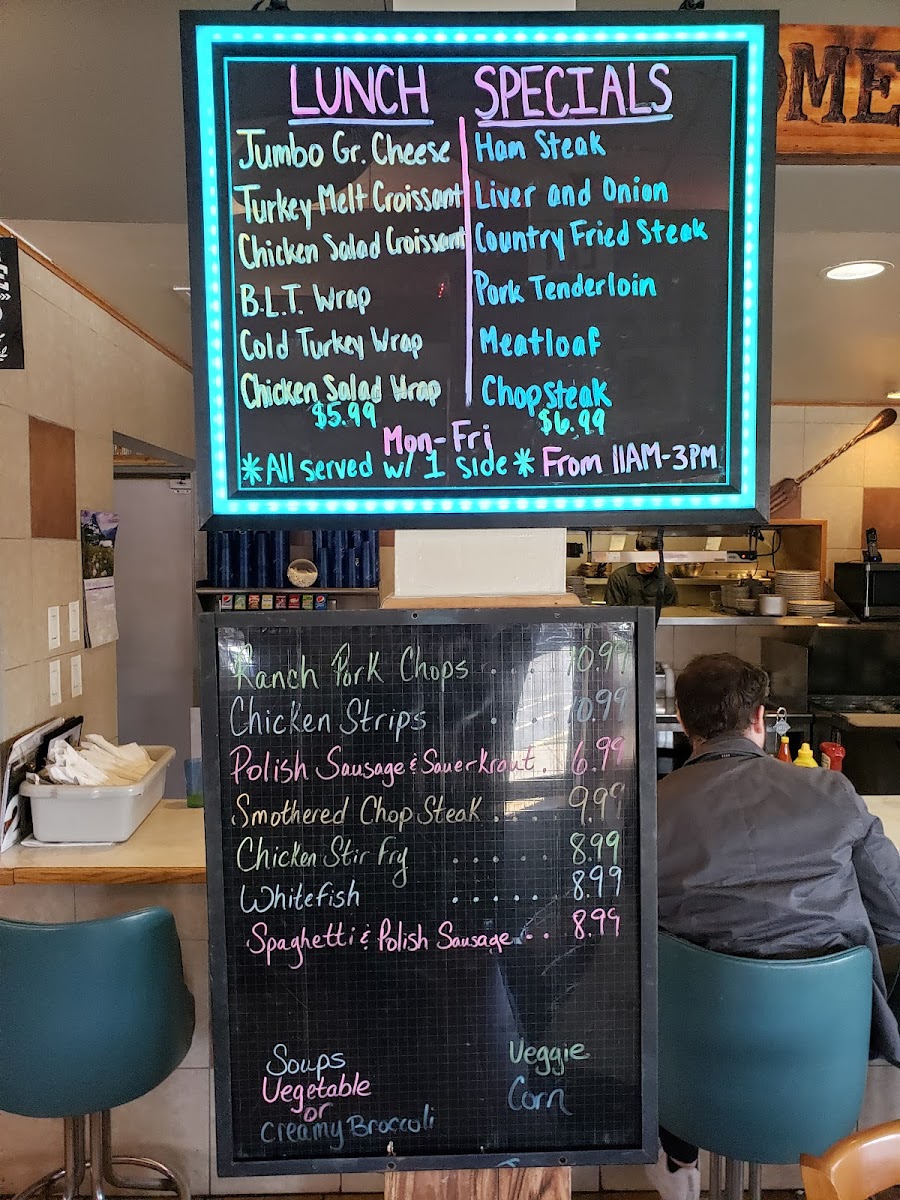 LUNCH SPECIALS
Jumbo Gr. Cheese
Turkey Melt Croissant
Chicken Salad Croissant
B.L.T. Wrap
Cold Turkey Wrap
Chicken Salad Wrap
$5.99
Ham Steak
Liver and Onion
Country Fried Steak
Pork Tenderloin
Meatloaf
Chopsteak
$6.99
Mon-Fri
*All served w/ 1 side* From 11AM-3PM
OME
Ranch Pork Chops .... 10.99
Chicken Strips .... 10.99
Polish Sausage & Sauerkraut. 6.99
Smothered Chop Steak .... 9.99
Chicken Stir Fry ...... 8.99
Whitefish ...... 8.99
Spaghetti & Polish Sausage .. 8.99
Soups
Vegetable
or
Creamy Broccoli
Veggie
Corn